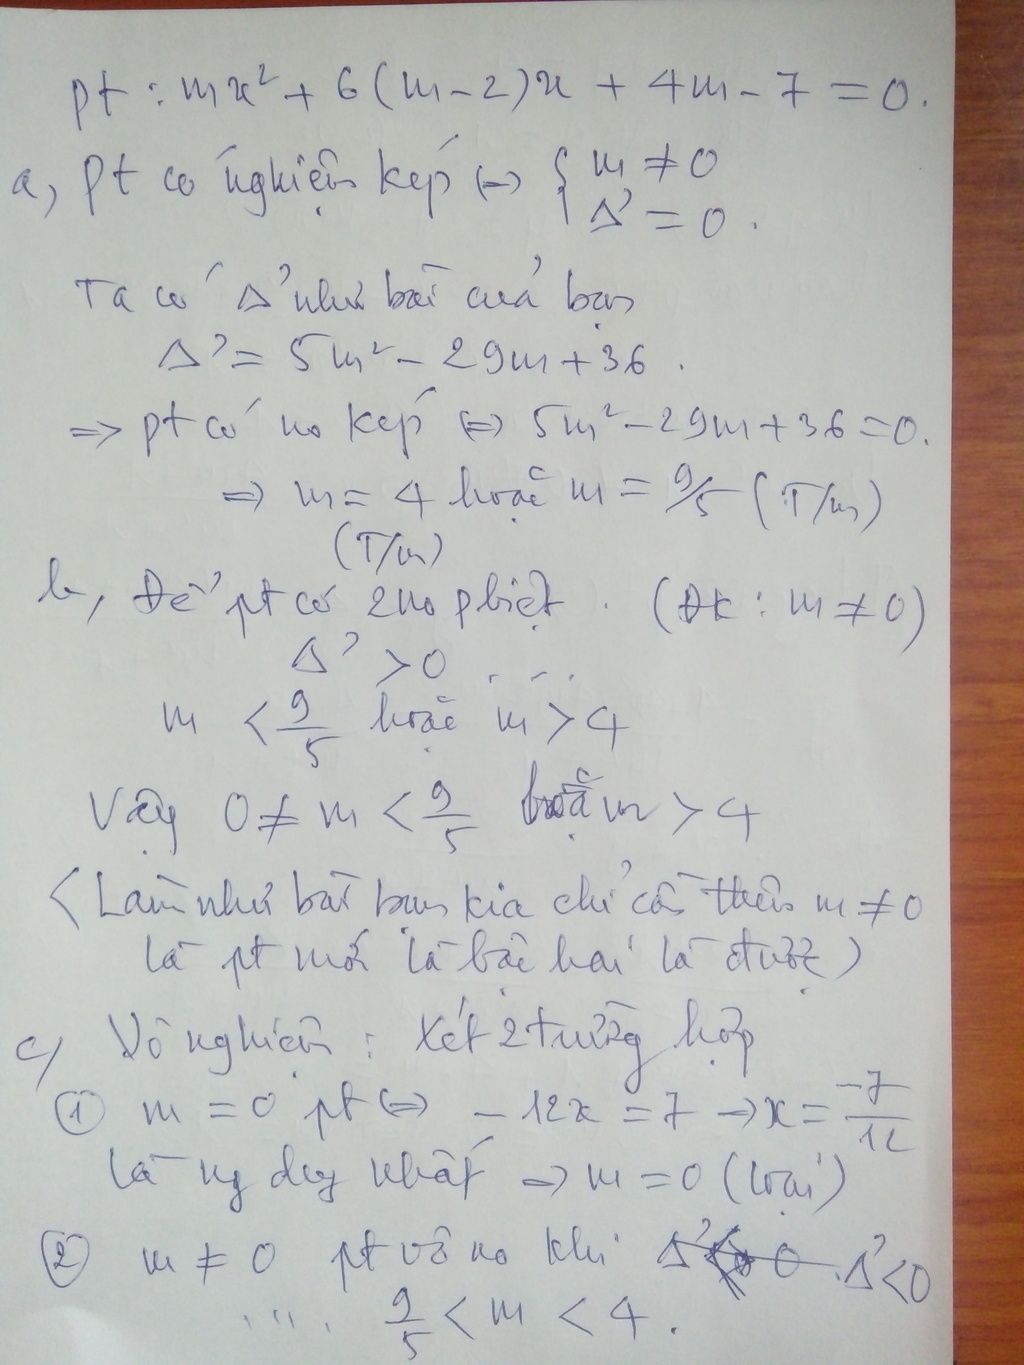 pt : mx² + 6(m-2)x + 4m - 7 = 0.
a, Pt có nghiệm kép ⇔ { m ≠ 0
Δ' = 0 .
Ta có Δ' như bài của bạn
Δ' = 5m² - 29m + 36 .
⇒ pt có no kép ⇔ 5m² - 29m + 36 = 0.
⇒ m = 4 hoặc m = 9/5 (T/m)
(T/m)
b, Để pt có 2 no pbiệt . (ĐK : m ≠ 0)
Δ' > 0 . . .
m < 9/5 hoặc m > 4
Vậy 0 ≠ m < 9/5 hoặc m > 4
(Làm như bài bạn kia chỉ cần thêm m ≠ 0
là pt mới là bậc hai là được)
c, Vô nghiệm : Xét 2 trường hợp
① m = 0 pt ⇔ - 12x = 7 → x = -7/12
là ng duy nhất ⇒ m = 0 (loại)
② m ≠ 0 pt vô no khi Δ' < 0
..... 9/5 < m < 4 .